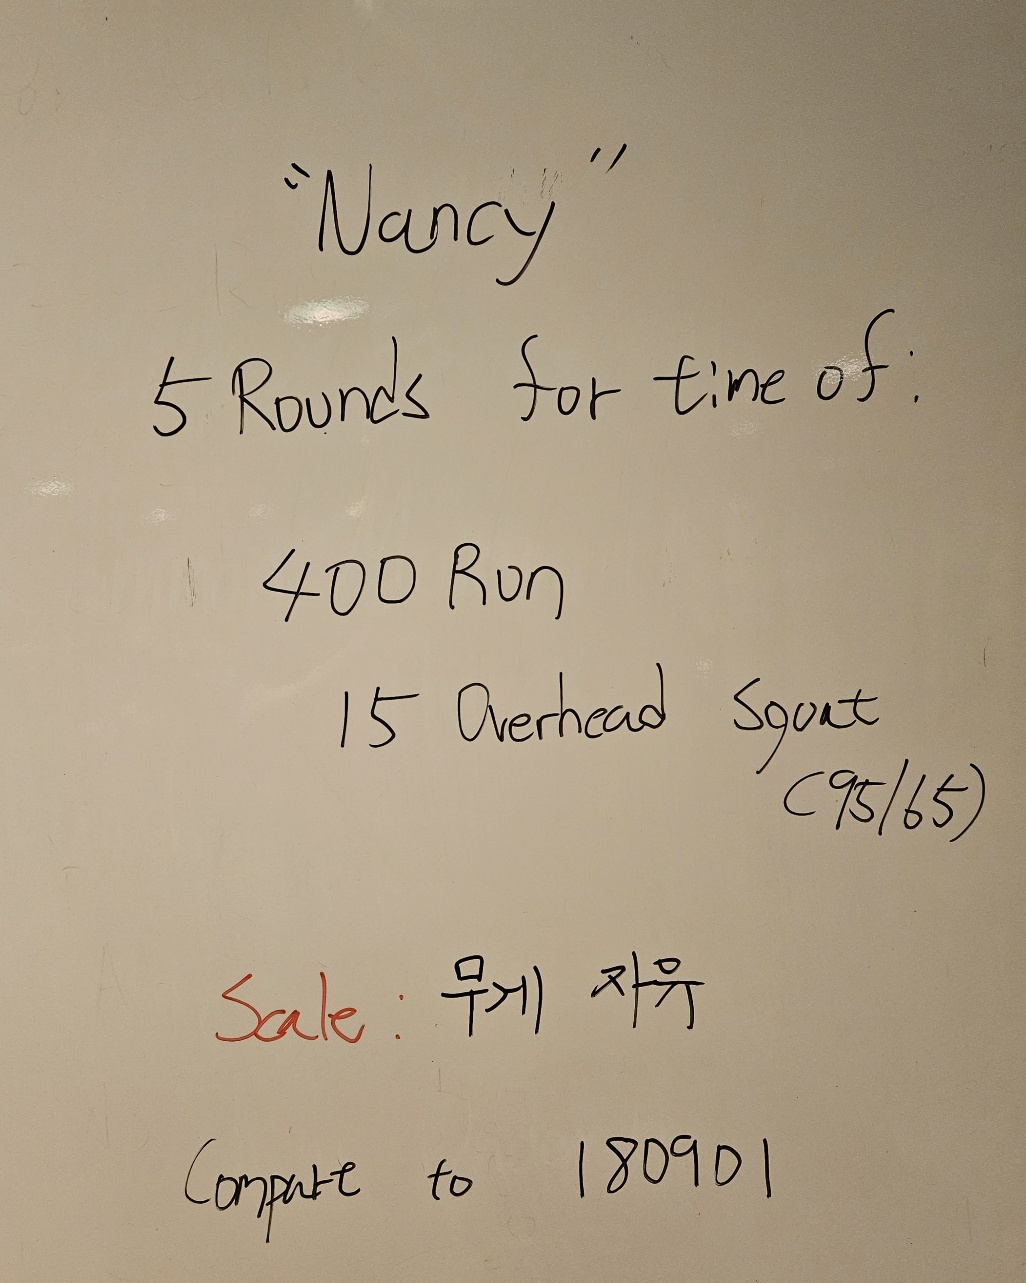 "Nancy"
5 Rounds for time of:
400 Run
15 Overhead Squat
(95/65)
Scale: 무게 자유
Compare to 180901